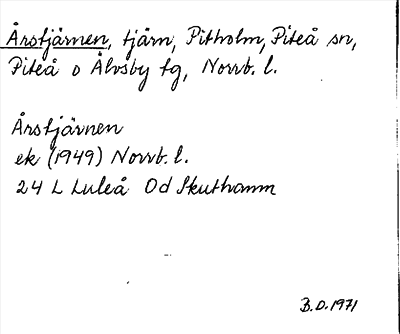 Årstjärnen, tjärn, Pitholm, Piteå sn,
Piteå o Älvsby tg, Norrb. l.
Årstjärnen
ek (1949) Norrb. l.
24 L Luleå 0d Skuthamn
B.D. 1971